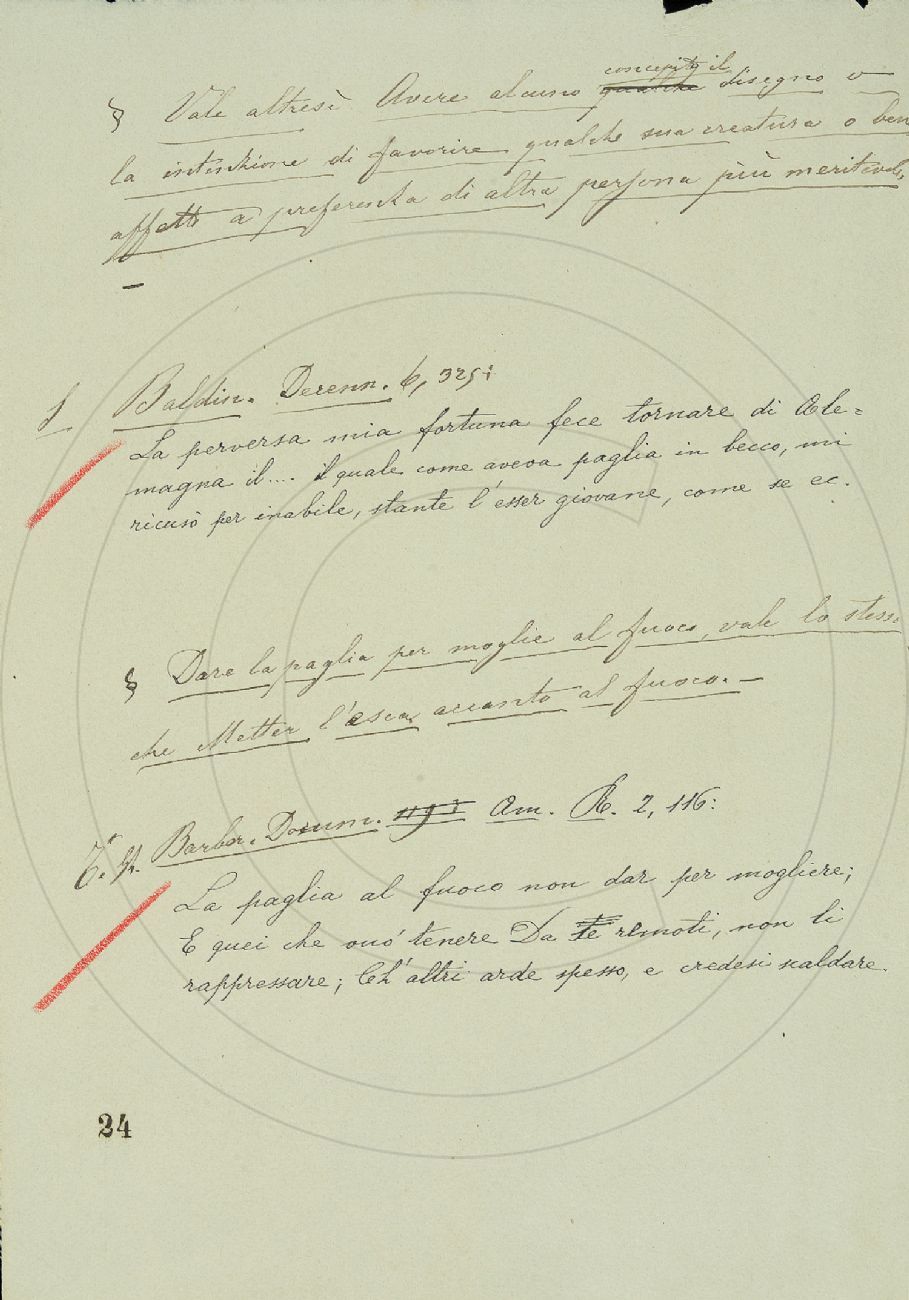 § Vale altresì Avere alcuno concepito il disegno o
la intenzione di favorire qualche sua creatura o ben
affetto a preferenza di altra persona più meritevole,
–
§ Baldin. Decenn. 6, 325:
La perversa mia fortuna fece tornare di Ale=
magna il.... il quale come aveva paglia in becco, mi
ricusò per inabile, stante l'esser giovane, come se ec.
§ Dare la paglia per moglie al fuoco, vale lo stesso
che Metter l'esca accanto al fuoco. –
Barber. Docum. Am. R. 2, 116:
La paglia al fuoco non dar per mogliere;
E quei che vuo' tenere Da te remoti, non li
rappressare; Ch'altri arde spesso, e credesi scaldare.
24